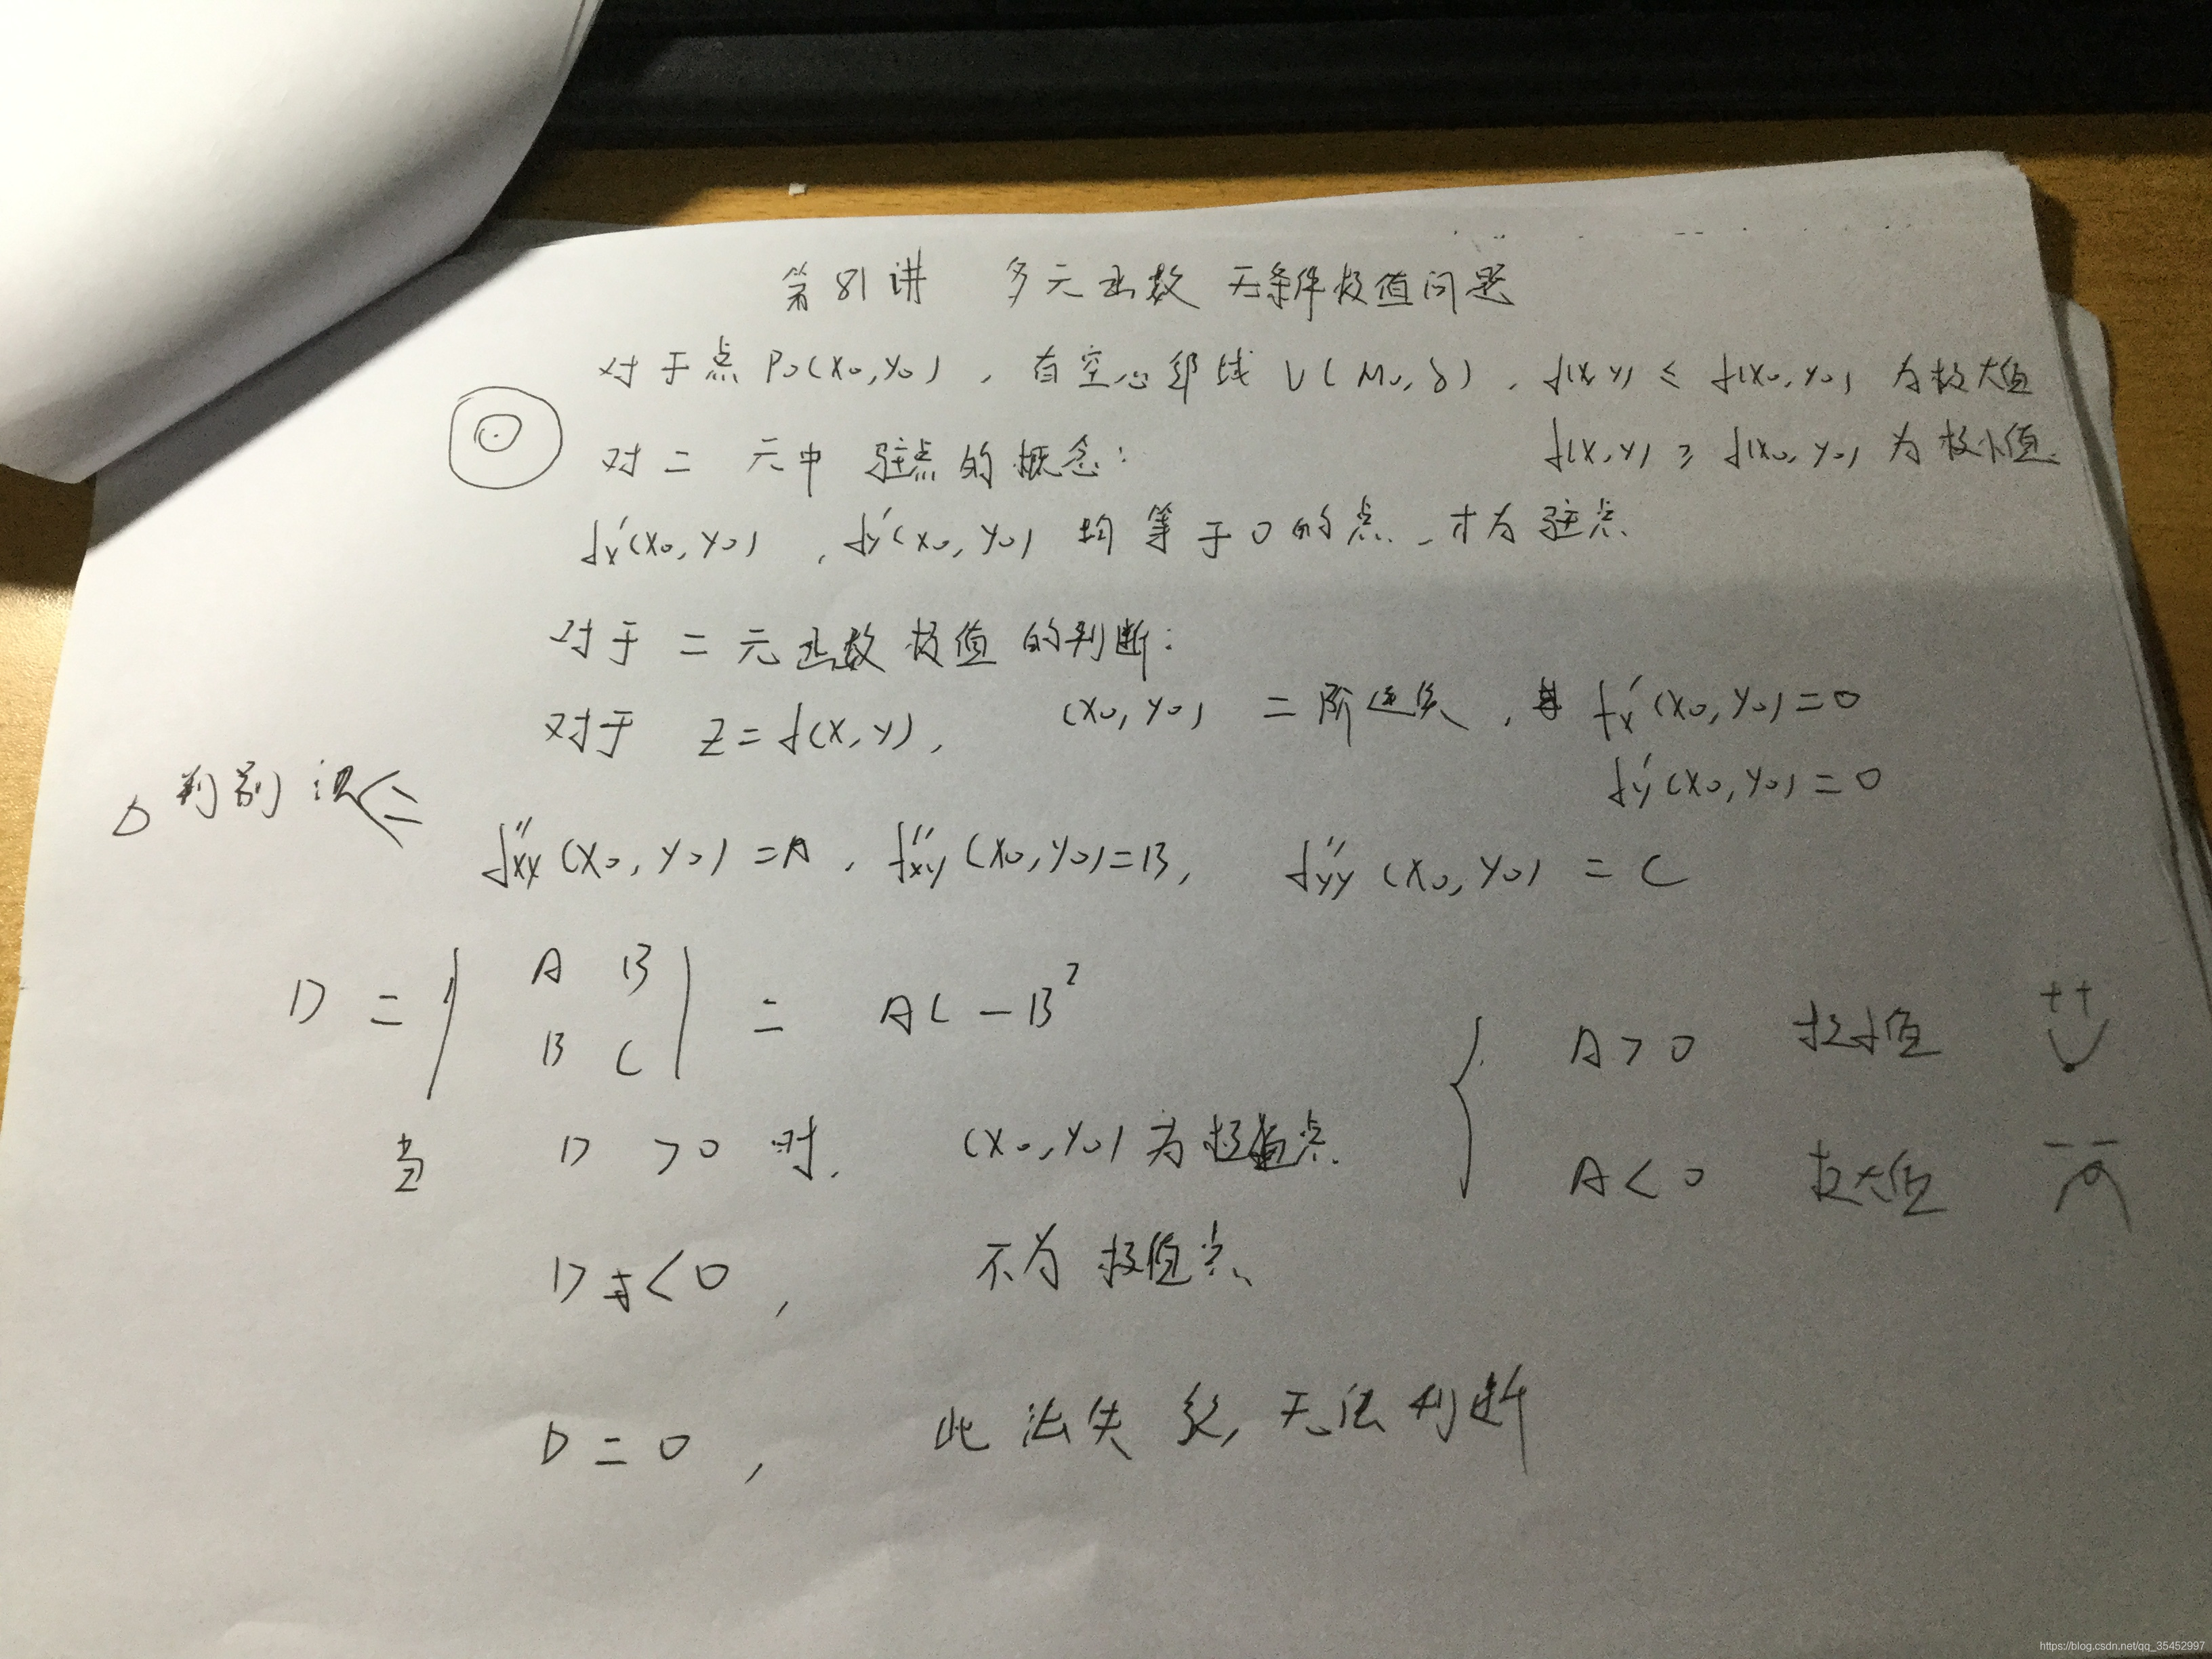 第81讲 多元函数 无条件极值问题
对于点 P0(x0,y0), 有空心邻域 U(M0,δ), f(x,y) ≤ f(x0,y0) 为极大值
f(x,y) ≥ f(x0,y0) 为极小值
对二元中 驻点的概念:
fx'(x0,y0), fy'(x0,y0) 均等于0的点, 才为驻点.
对于二元函数极值的判断:
对于 z=f(x,y), (x0,y0) 二阶连续, 且 fx'(x0,y0)=0
fy'(x0,y0)=0
△判别法
fxx''(x0,y0)=A, fxy''(x0,y0)=B, fyy''(x0,y0)=C
D = | A B
B C | = AC-B²
A>0 极小值 ++
当 D>0 时, (x0,y0) 为极值点.
A<0 极大值 --
D<0, 不为极值点
D=0, 此法失效, 无法判断
https://blog.csdn.net/qq_35452997